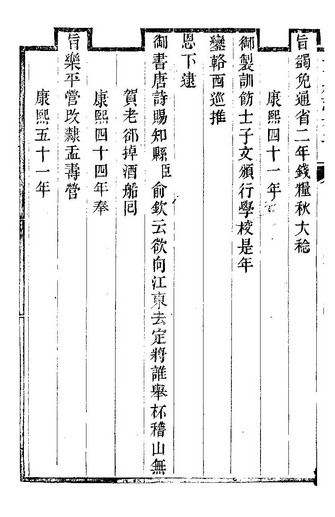 旨蠲免通省二年錢糧秋大稔
康熙四十一年
御製訓飭士子文頒行學校是年
鑾輅西巡推
恩下逮
御書唐詩賜知縣臣俞欽云欲向江東去定將誰舉杯稽山無
賀老卻掉酒船回
康熙四十四年奉
旨樂平營改隸盂壽營
康熙五十一年